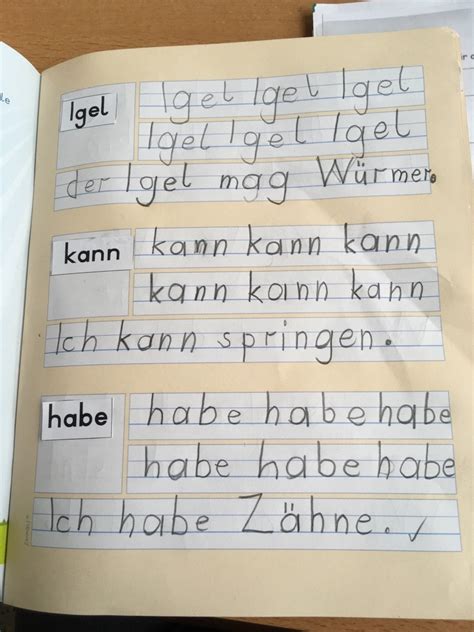 Igel
Igel Igel Igel
Igel Igel Igel
der Igel mag Würmer.
kann
kann kann kann
kann kann kann
Ich kann springen.
habe
habe habe habe
habe habe habe
Ich habe Zähne. ✓